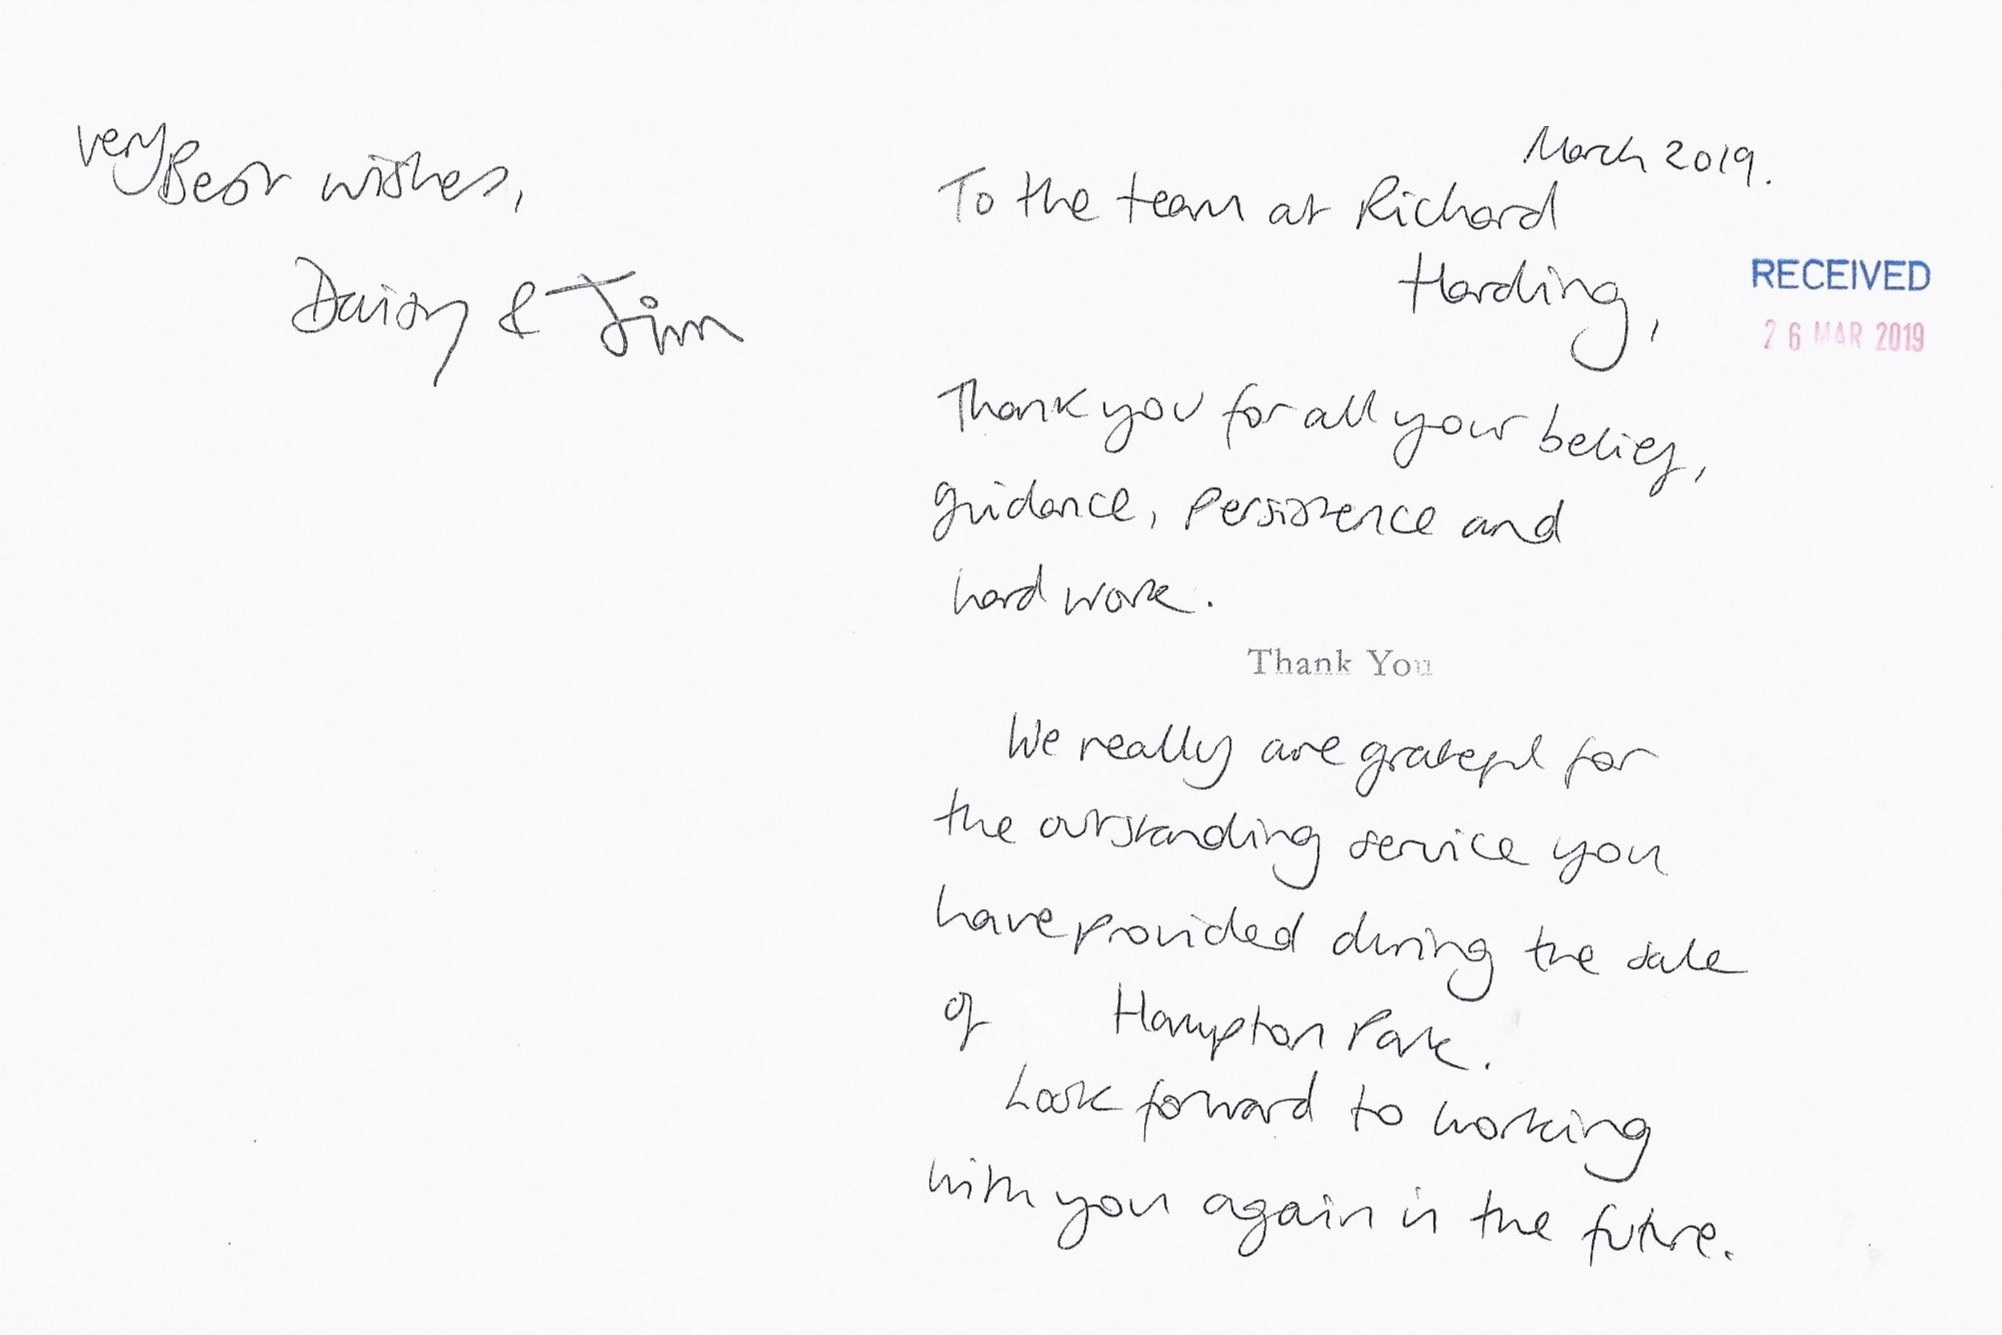 March 2019.
To the team at Richard
Harding,
RECEIVED
26 MAR 2019
Thank you for all your belief,
guidance, persistence and
hard work.
Thank You
We really are grateful for
the outstanding service you
have provided during the sale
of Hampton Park.
Look forward to working
with you again in the future.
very Best wishes,
Daisy & Jim